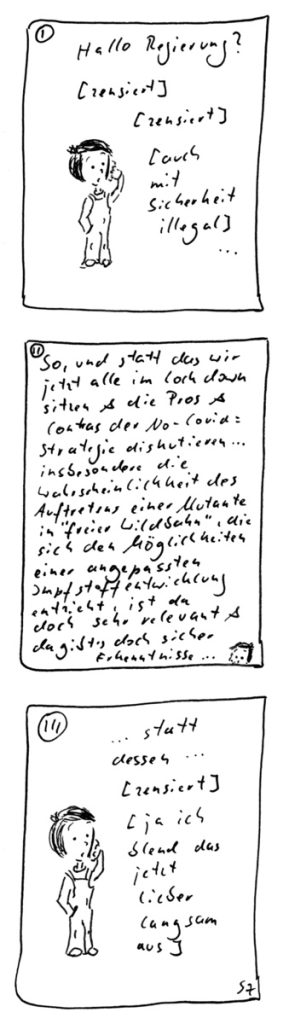 I
Hallo Regierung?
[zensiert]
[zensiert]
[auch
mit
Sicherheit
illegal]
...
II
So, und statt das wir
jetzt alle im Lockdown
sitzen & die Pros &
Contras der No-Covid=
Strategie diskutieren...
insbesondere die
Wahrscheinlichkeit des
Auftretens einer Mutante
in "freier Wildbahn", die
sich den Möglichkeiten
einer angepassten
Impfstoffentwicklung
entzieht, ist da
doch sehr relevant &
da gibt's doch sicher
Erkenntnisse...
III
... statt
dessen ...
[zensiert]
[ja ich
blend das
jetzt
lieber
langsam
aus]